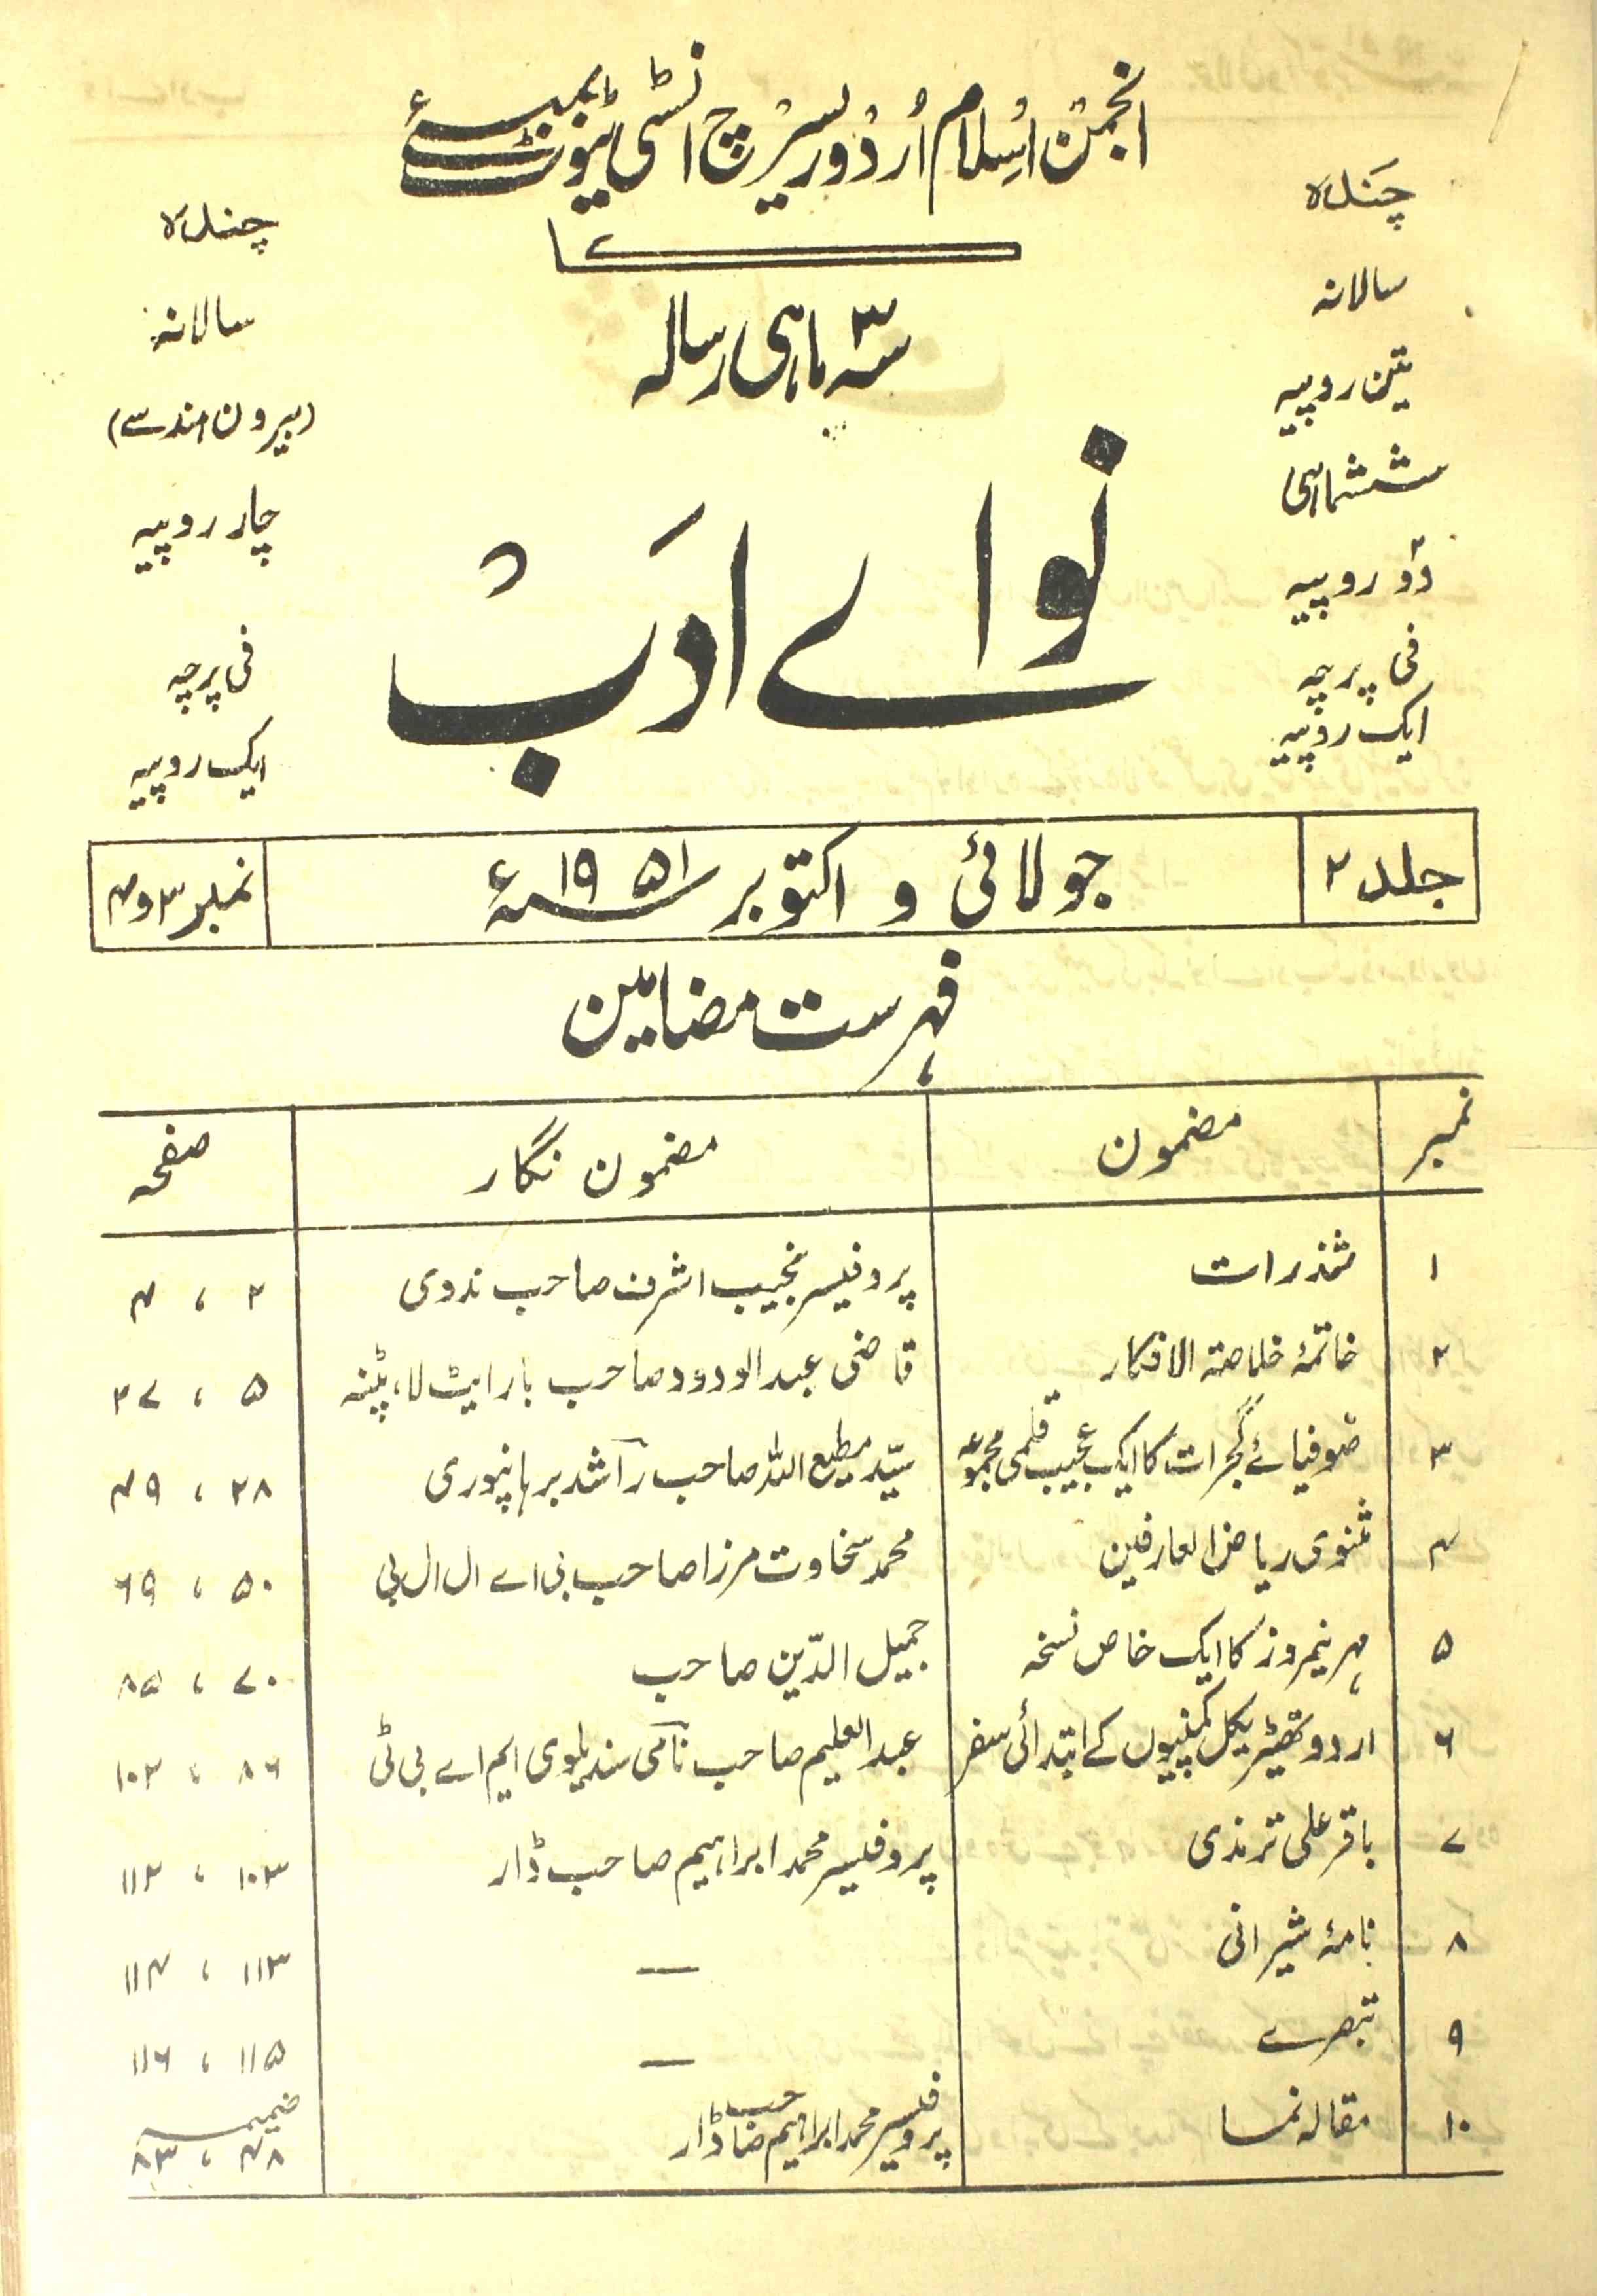 انجمن اسلام اردو ریسرچ انسٹی ٹیوٹ بمبئی
کا
سہ ماہی رسالہ
نواے ادب
چندہ
سالانہ
تین روپیہ
ششماہی
دو روپیہ
فی پرچہ
ایک روپیہ
چندہ
سالانہ
(بیرون ہند سے)
چار روپیہ
فی پرچہ
ایک روپیہ
جلد ۲ جولائی و اکتوبر ۱۹۵۱ء نمبر ۳ و ۴
فہرست مضامین
نمبر مضمون مضمون نگار صفحہ
۱ شذرات پروفیسر نجیب اشرف صاحب ندوی ۲ ، ۴
۲ خاتمۂ خلاصۃ الافکار قاضی عبدالودود صاحب بار ایٹ لا، پٹنہ ۵ ، ۲۷
۳ صوفیائے گجرات کا ایک عجیب قلمی مجموعہ سیّد مطیع اللہ صاحب راشد برہانپوری ۲۸ ، ۴۹
۴ مثنوی ریاض العارفین محمد سخاوت مرزا صاحب بی اے ال ال بی ۵۰ ، ۶۹
۵ مہر نیمروز کا ایک خاص نسخہ جمیل الدّین صاحب ۷۰ ، ۸۵
۶ اردو تھیٹریکل کمپنیوں کے ابتدائی سفر عبدالعلیم صاحب نامی سندیلوی ایم اے بی ٹی ۸۶ ، ۱۰۲
۷ باقر علی ترمذی پروفیسر محمد ابراہیم صاحب ڈار ۱۰۳ ، ۱۱۲
۸ نامۂ شیرانی — ۱۱۳ ، ۱۱۴
۹ تبصرے — ۱۱۵ ، ۱۱۶
۱۰ مقالہ نما پروفیسر محمد ابراہیم صاحب ڈار ضمیمہ ۴۸ ، ۸۳